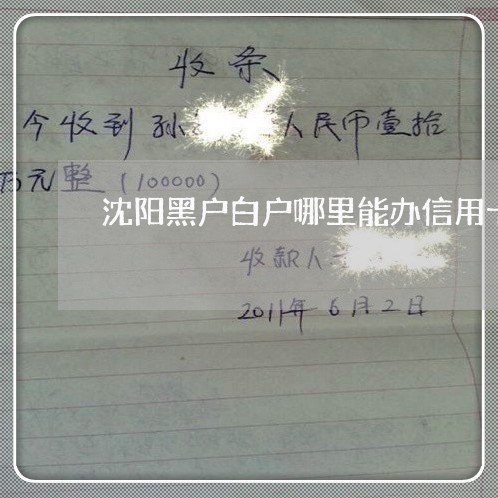 收条
今收到孙 人民币壹拾
万元整(100000)
沈阳黑户白户哪里能办信用卡
收款人
2011年6月2日